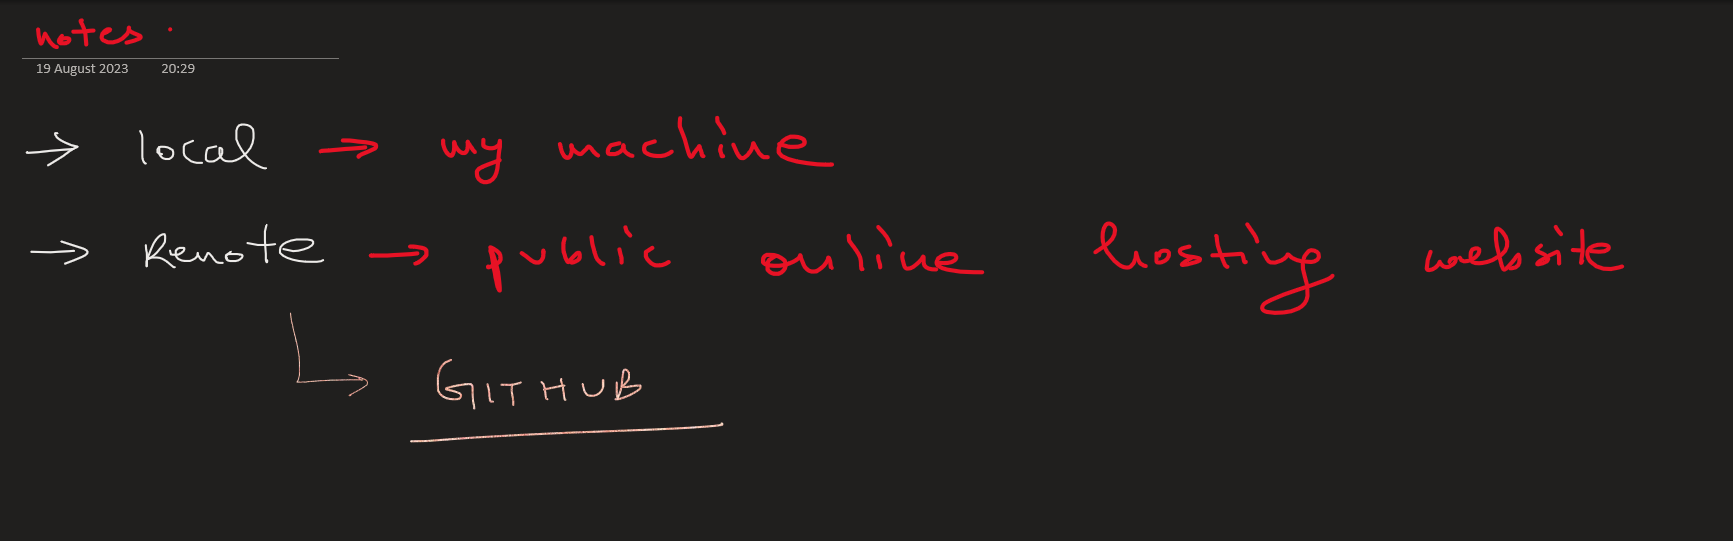 notes.
19 August 2023 20:29
→ local → my machine
→ Remote → public online hosting website
↳ GITHUB